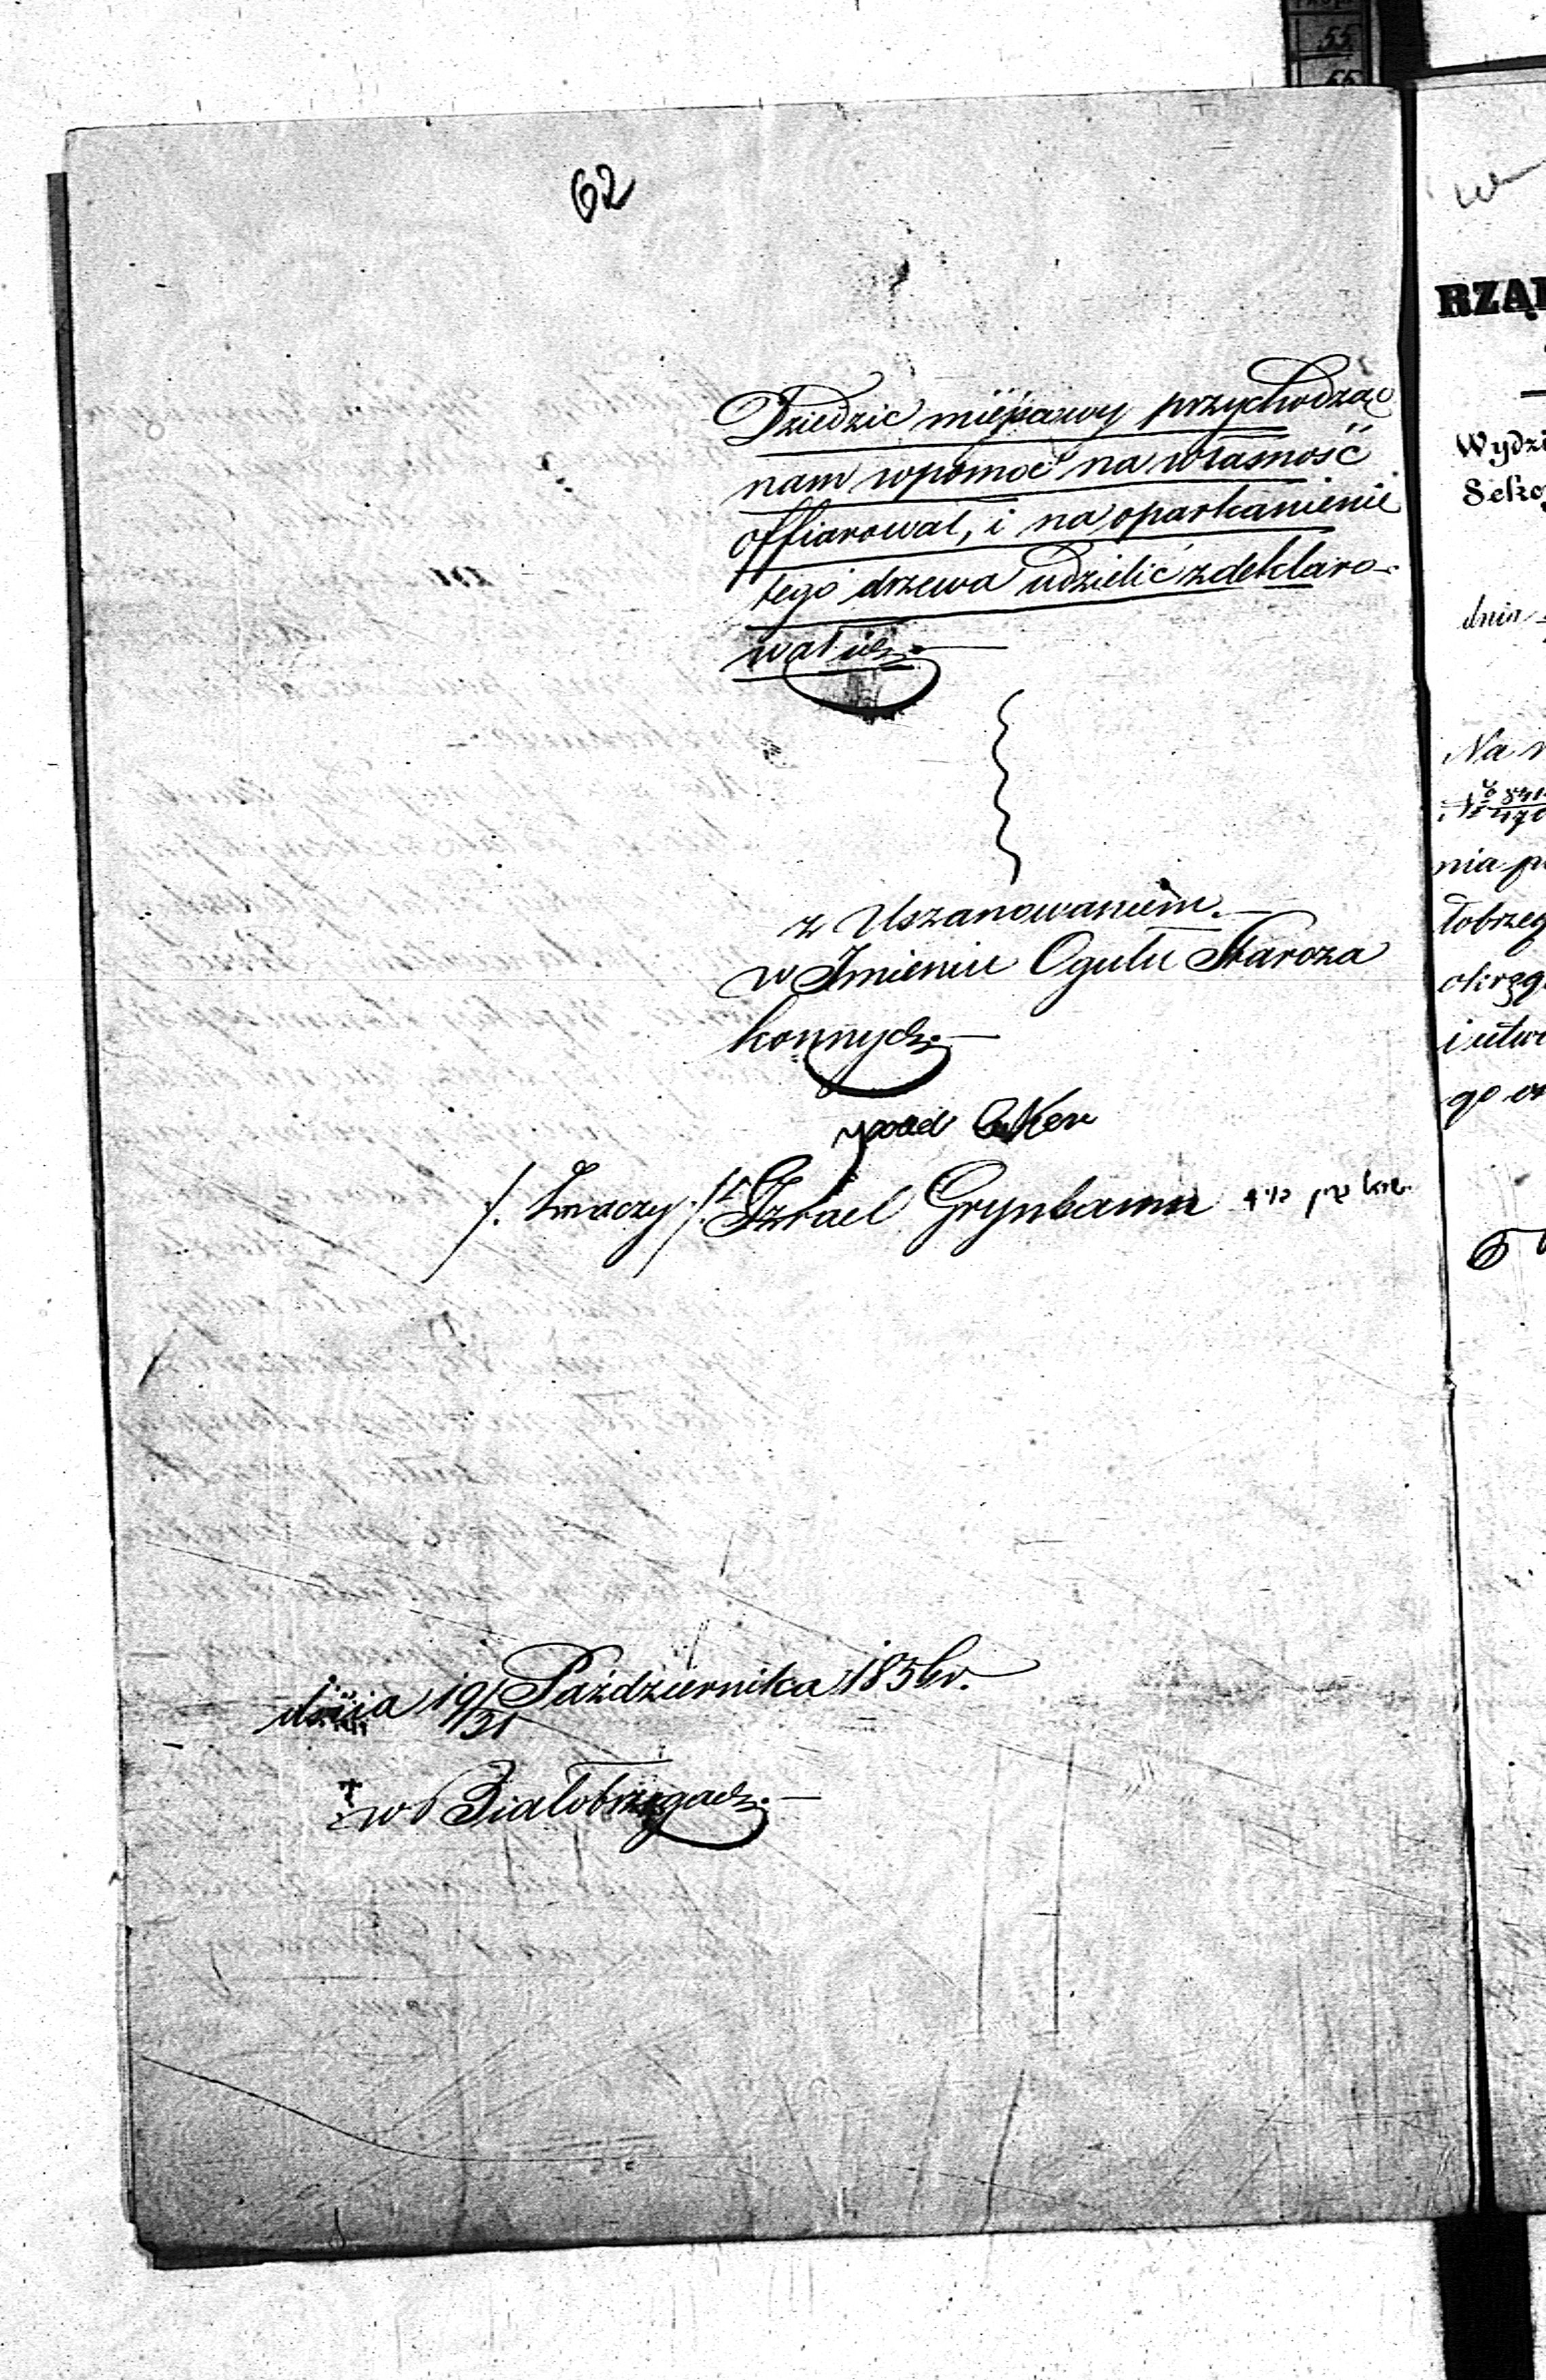 62
Dziedzic miejscowy przychodząc
nam w pomoc na własność
offiarował, i na oparkanienie
tego drzewa udzielić zdeklaro-
wał się.
z Uszanowaniem.
w Imieniu Ogułu Staroza
konnych.
/. znaczy ./ Izrael Grynbaum
dnia 19/31 Października 1856 r.
w Białobrzegach.
RZĄD
Wydzi
Sekc
dnia
Na
nia
łobrzeg
okręg
i utw
go
55
55